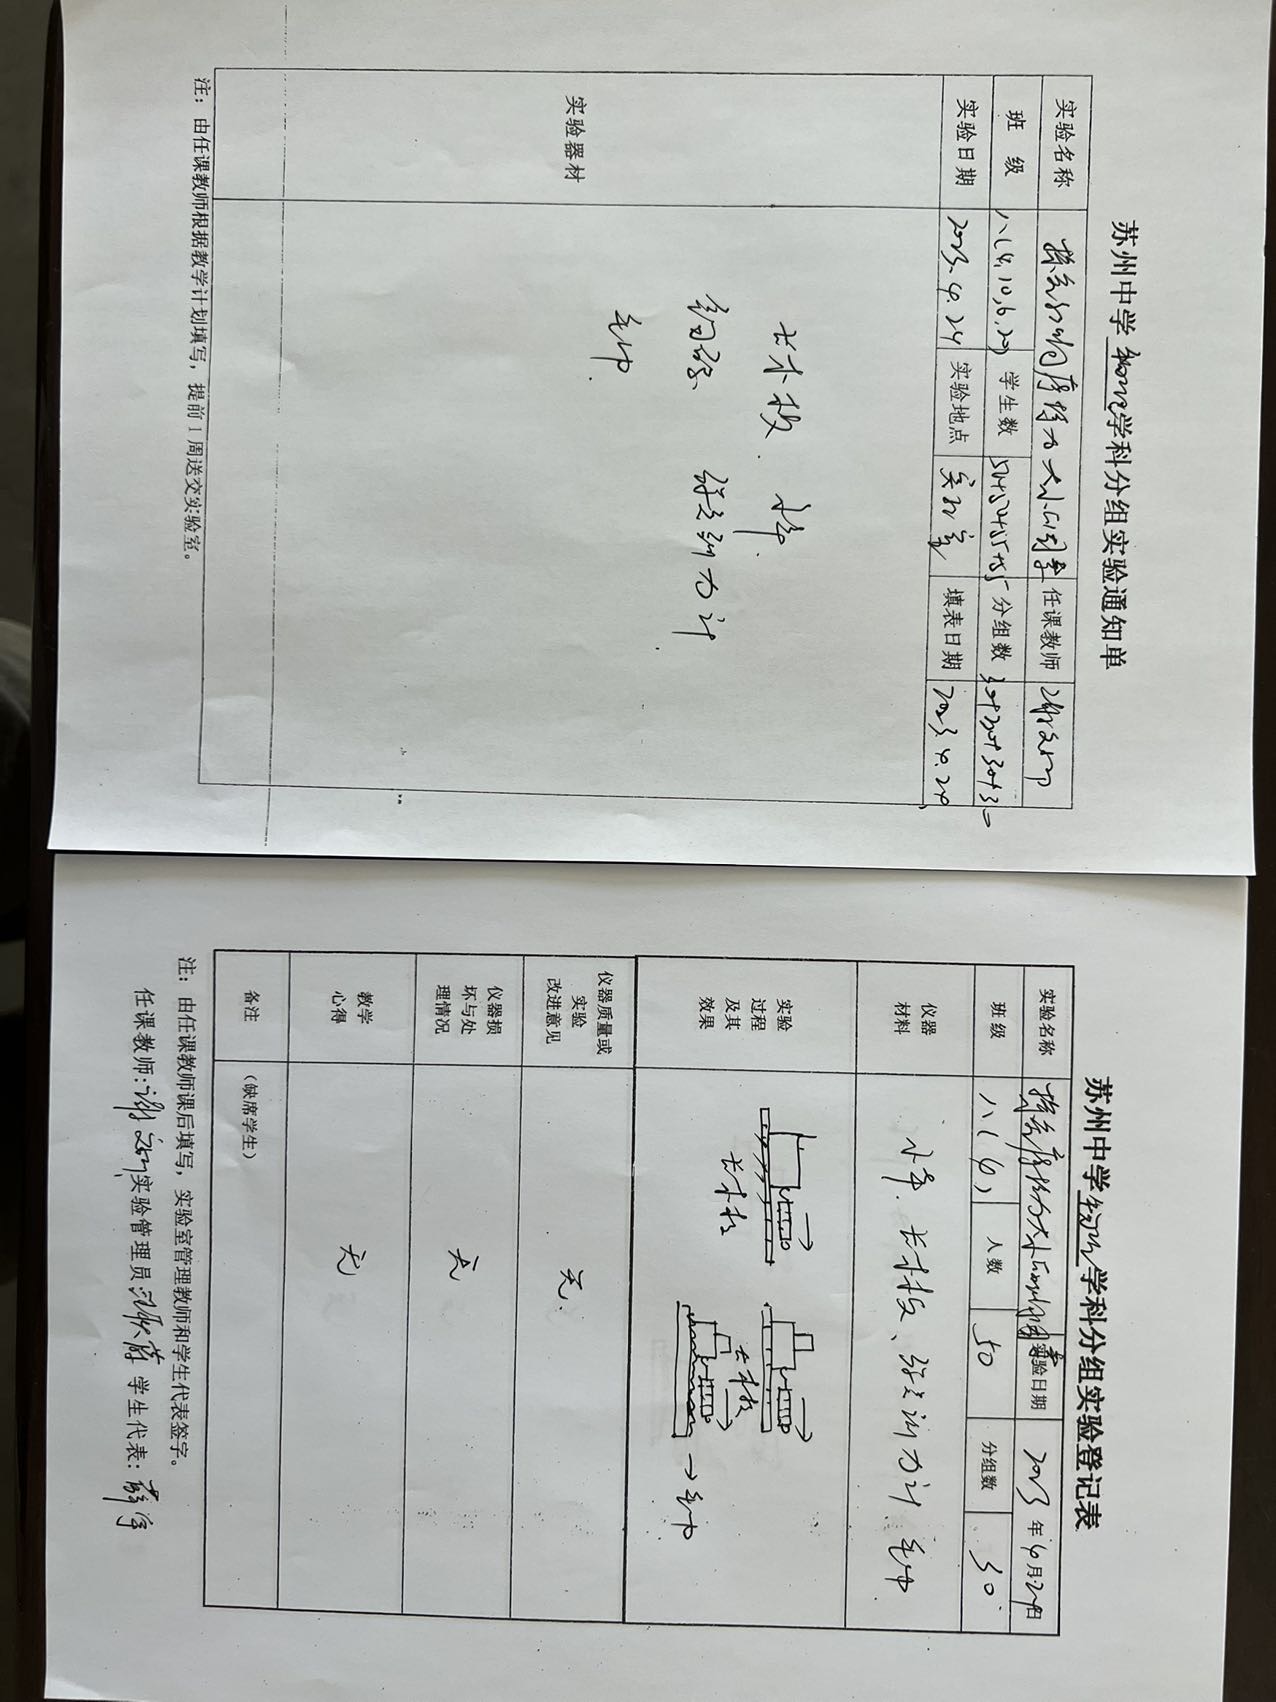 苏州中学物理学科分组实验通知单
实验名称 探究影响摩擦力大小因素 任课教师
班 级 八(4,10,6,20) 学生数 分组数 30+30+30+30
实验日期 2023.4.24 实验地点 实验室 填表日期 2023.4.24
实验器材
长木板. 木块.
钩码 弹簧测力计
毛巾.
注：由任课教师根据教学计划填写，提前 1 周送交实验室。
苏州中学物理学科分组实验登记表
实验名称 探究摩擦力大小 实验日期 2023 年 4 月 24 日
班级 八(4) 人数 50 分组数 30
仪器材料 木块. 长木板、弹簧测力计 毛巾
实验过程及其效果
长木板
长木板
→毛巾
仪器质量或实验改进意见 无.
仪器损坏与处理情况 无
教学心得 无
备注 （缺席学生）
注：由任课教师课后填写，实验室管理教师和学生代表签字。
任课教师: 实验管理员: 学生代表: